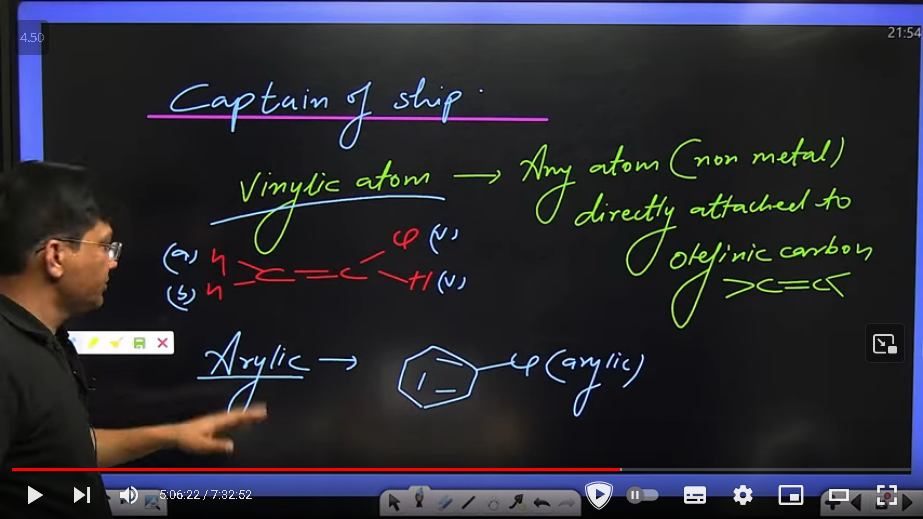 4.50
21:54
Captain of ship
Vinylic atom → Any atom (non metal)
directly attached to
olefinic carbon
>C=C<
(a) H
Cl (v)
C=C
(b) H
H (v)
Arylic → Cl (arylic)
5:06:22 / 7:32:52